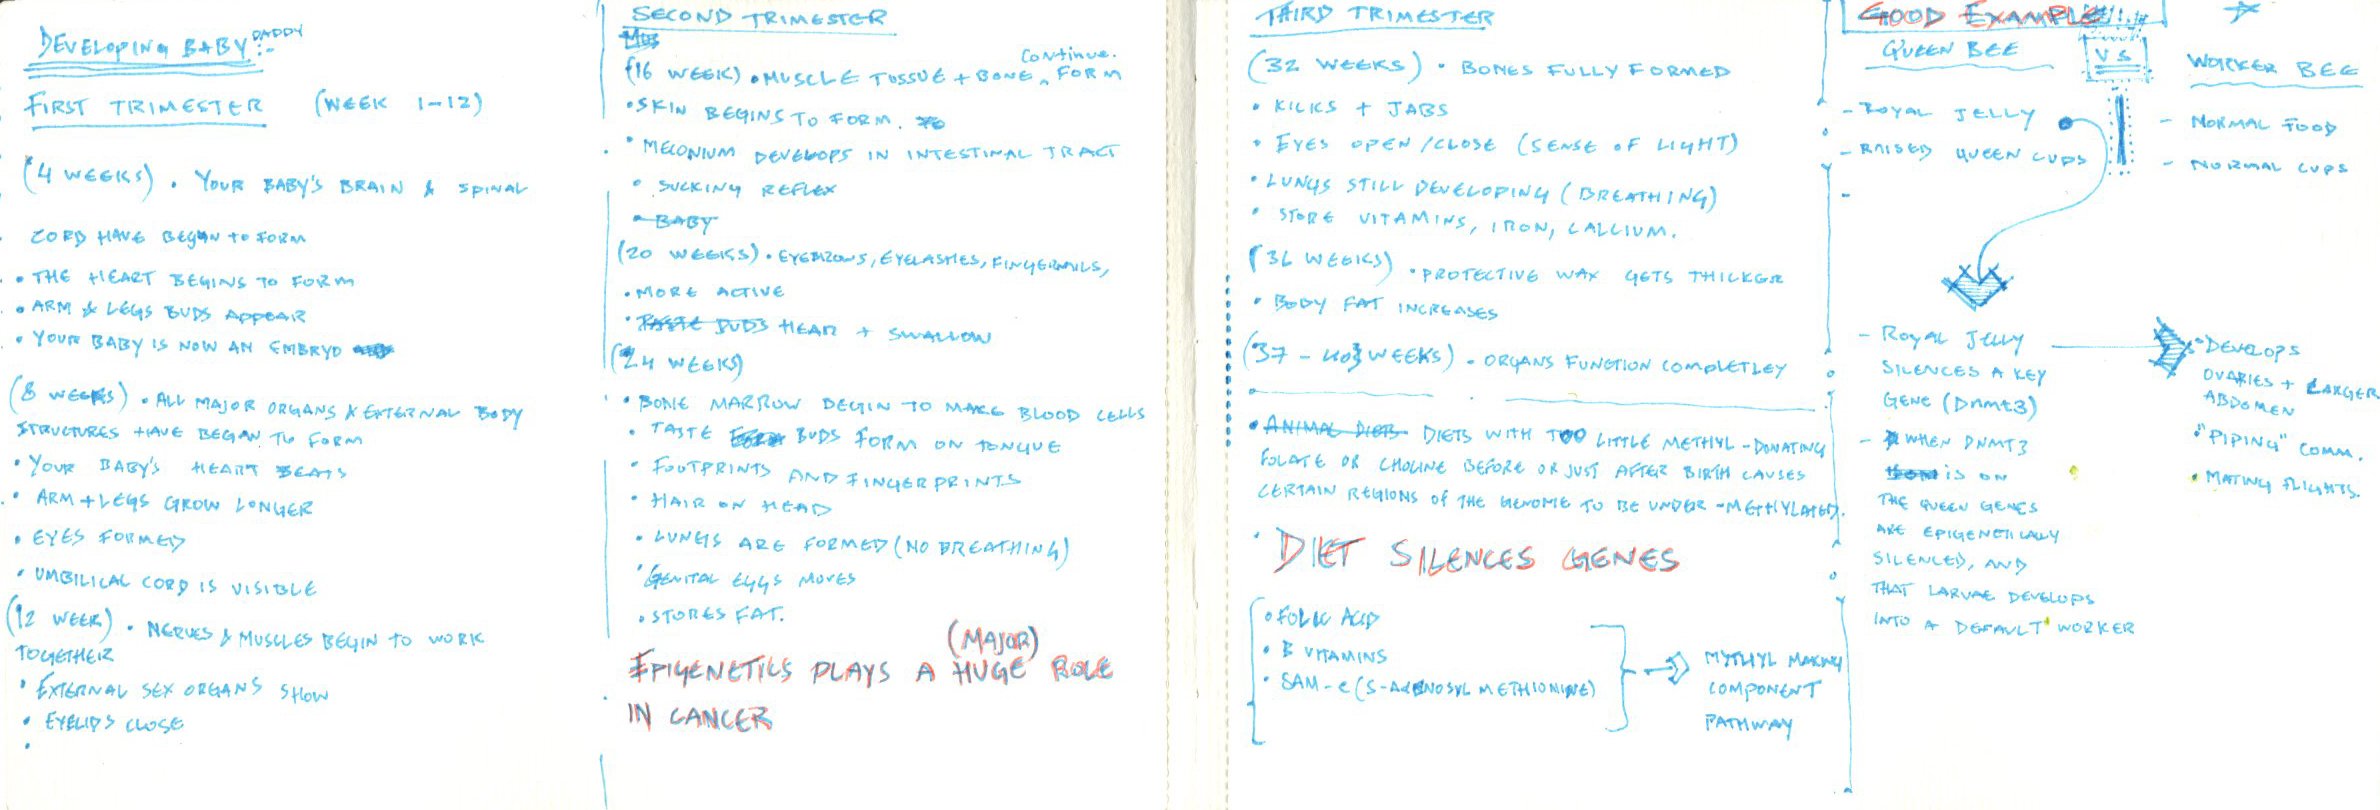 DEVELOPING BABY :- DADDY
FIRST TRIMESTER (WEEK 1-12)
(4 WEEKS) • YOUR BABY'S BRAIN & SPINAL
CORD HAVE BEGAN TO FORM
• THE HEART BEGINS TO FORM
• ARM & LEGS BUDS APPEAR
• YOUR BABY IS NOW AN EMBRYO
(8 WEEKS) • ALL MAJOR ORGANS & EXTERNAL BODY
STRUCTURES HAVE BEGAN TO FORM
• YOUR BABY'S HEART BEATS
• ARM + LEGS GROW LONGER
• EYES FORMED
• UMBILICAL CORD IS VISIBLE
(12 WEEK) • NERVES & MUSCLES BEGIN TO WORK
TOGETHER
• EXTERNAL SEX ORGANS SHOW
• EYELIDS CLOSE
SECOND TRIMESTER
MUS
continue.
(16 WEEK) • MUSCLE TUSSUE + BONE ^ FORM
• SKIN BEGINS TO FORM.
• MECONIUM DEVELOPS IN INTESTINAL TRACT
• SUCKING REFLEX
• BABY
(20 WEEKS) • EYEBROWS, EYELASHES, FINGERNAILS,
• MORE ACTIVE
• TASTE BUDS HEAR + SWALLOW
(24 WEEKS)
• BONE MARROW BEGIN TO MAKE BLOOD CELLS
• TASTE BUDS FORM ON TONGUE
• FOOTPRINTS AND FINGERPRINTS
• HAIR ON HEAD
• LUNGS ARE FORMED (NO BREATHING)
• GENITAL EGGS MOVES
• STORES FAT.
(MAJOR)
EPIGENETICS PLAYS A HUGE ROLE
IN CANCER
THIRD TRIMESTER
(32 WEEKS) • BONES FULLY FORMED
• KICKS + JABS
• EYES OPEN/CLOSE (SENSE OF LIGHT)
• LUNGS STILL DEVELOPING (BREATHING)
• STORE VITAMINS, IRON, CALCIUM.
(36 WEEKS) • PROTECTIVE WAX GETS THICKER
• BODY FAT INCREASES
(37 - 40 WEEKS) • ORGANS FUNCTION COMPLETLEY
• ANIMAL DIETS DIETS WITH TOO LITTLE METHYL-DONATING
FOLATE OR CHOLINE BEFORE OR JUST AFTER BIRTH CAUSES
CERTAIN REGIONS OF THE GENOME TO BE UNDER-METHYLATED.
• DIET SILENCES GENES
• FOLIC ACID
• B VITAMINS
• SAM-e (S-ADENOSYL METHIONINE)
MYTHYL MAKING
COMPONENT
PATHWAY
GOOD EXAMPLE
QUEEN BEE
VS
WORKER BEE
- ROYAL JELLY
- RAISED QUEEN CUPS
- NORMAL FOOD
- NORMAL CUPS
- ROYAL JELLY
SILENCES A KEY
GENE (DNMT3)
- WHEN DNMT3
IS ON
THE QUEEN GENES
ARE EPIGENETICALLY
SILENCED, AND
THAT LARVAE DEVELOPS
INTO A DEFAULT WORKER
• DEVELOPS
OVARIES + LARGER
ABDOMEN
• "PIPING" COMM.
• MATING FLIGHTS.